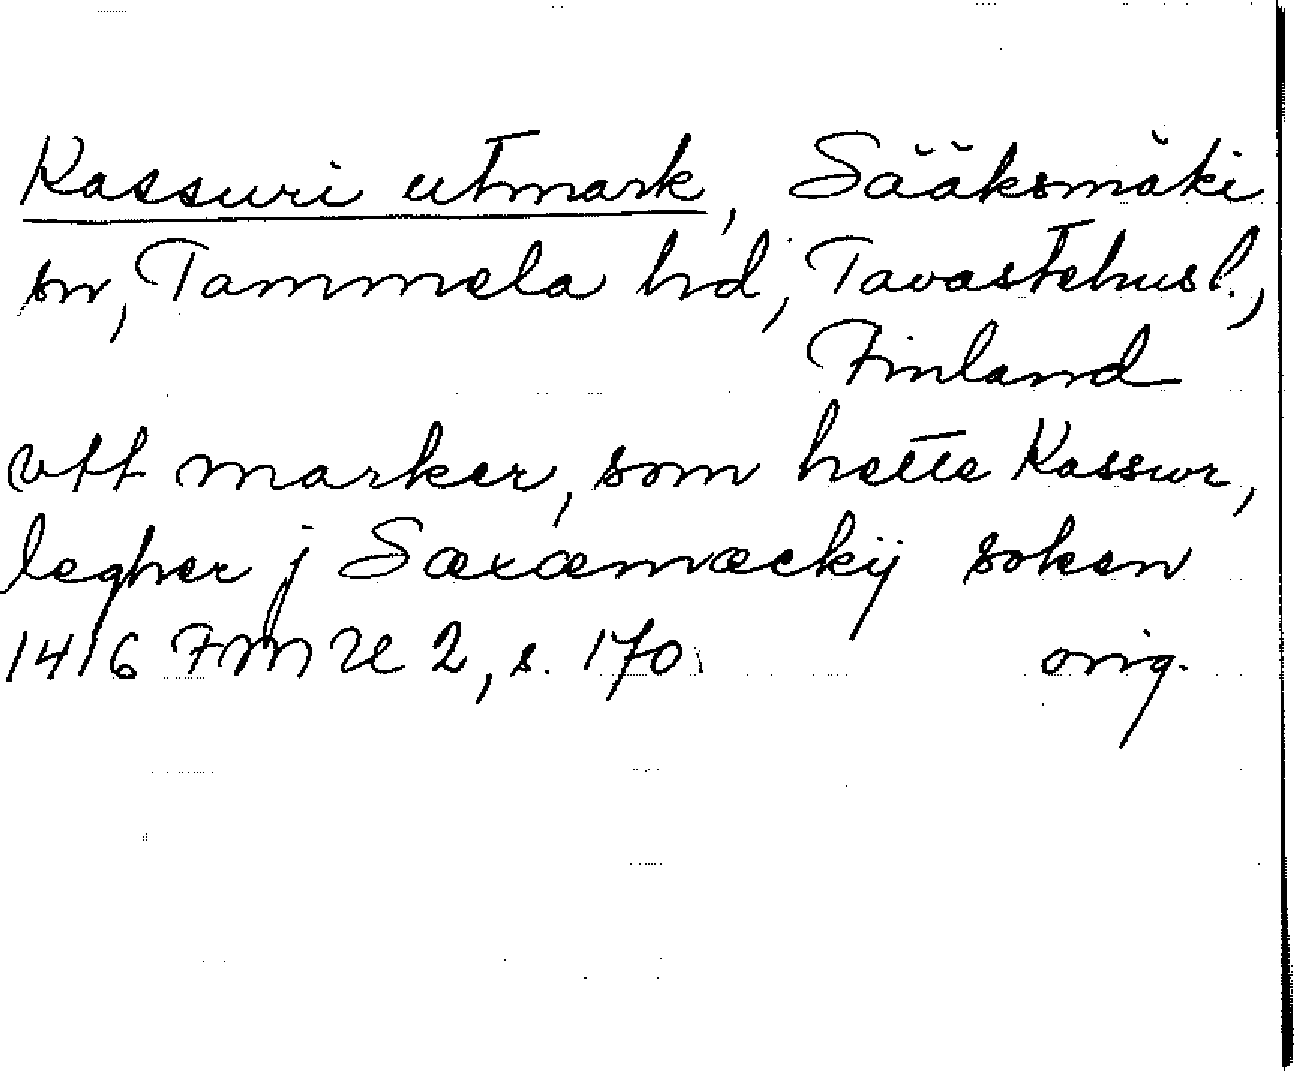 Kassuri utmark, Sääksmäki
sn, Tammela hd, Tavastehus l.,
Finland
vtt marker, som hette Kassur,
legher j Sæxæmæckij soken
1416 FMU 2, s. 170 orig.